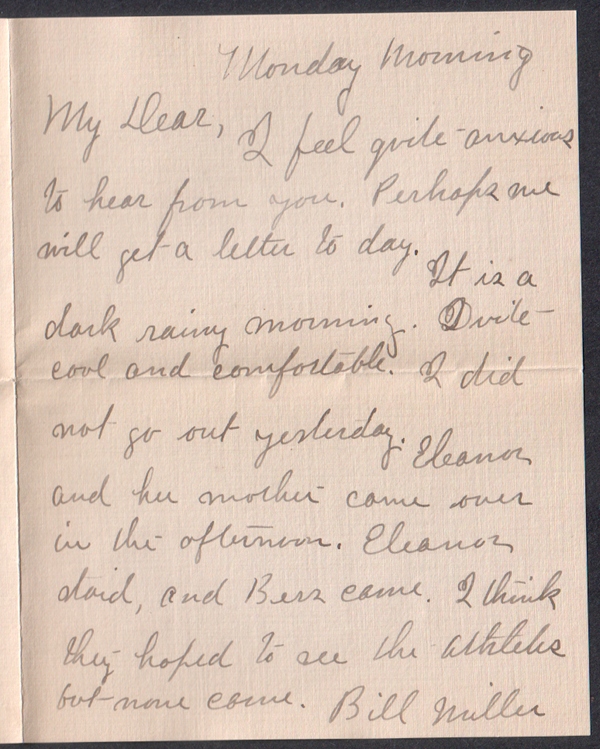 Monday Morning
My Dear,
I feel quite anxious
to hear from you. Perhaps we
will get a letter to day.
It is a
dark rainy morning. Quite
cool and comfortable. I did
not go out yesterday.
Eleanor
and her mother came over
in the afternoon. Eleanor
staid, and Bess came. I think
they hoped to see the athletes
but none came. Bill Miller